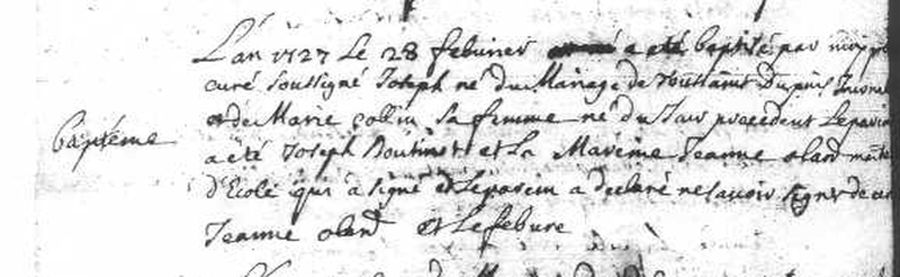 L'an 1727 Le 28 febvrier a eté baptisé par moy
curé soussigné Joseph né du Mariage de Toussaint Dupuis
et de Marie collin sa femme né du Jour precedent Leparin
baptéme
a été Joseph et La Mareine Jeanne oland
d'Ecole qui a signé et Leparein a declaré ne scavoir signer de ce
Jeanne oland et Lefebure